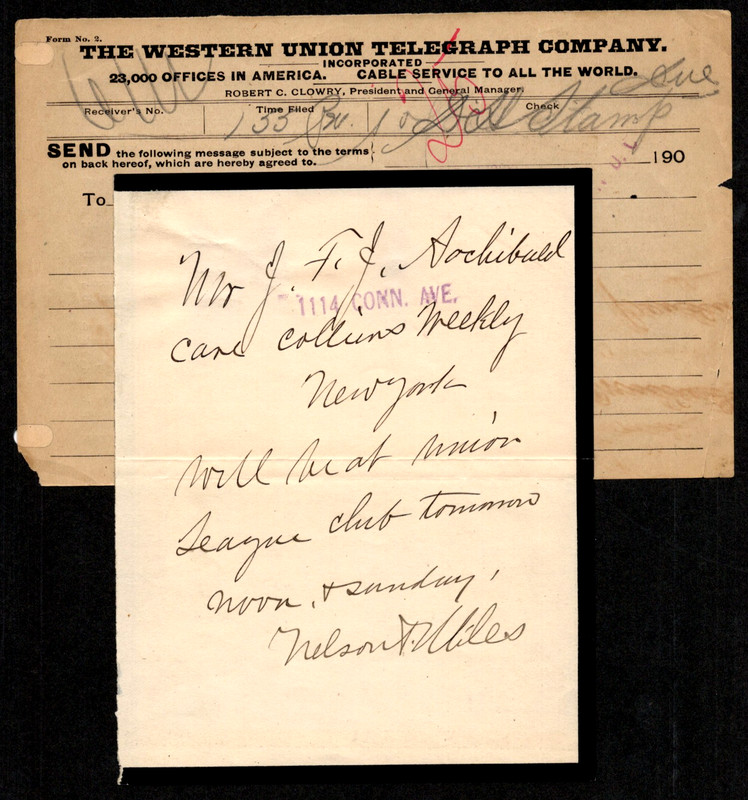 Form No. 2.
THE WESTERN UNION TELEGRAPH COMPANY.
INCORPORATED
23,000 OFFICES IN AMERICA. CABLE SERVICE TO ALL THE WORLD.
ROBERT C. CLOWRY, President and General Manager.
Receiver's No. Time Filed Check
133 Stamp
SEND the following message subject to the terms
on back hereof, which are hereby agreed to.
190
To
Mr J. F. J. Archibald
1114 CONN. AVE.
care colliers Weekly
New York
will be at union
League club tomorrow
noon, & sunday,
Nelson A. Miles